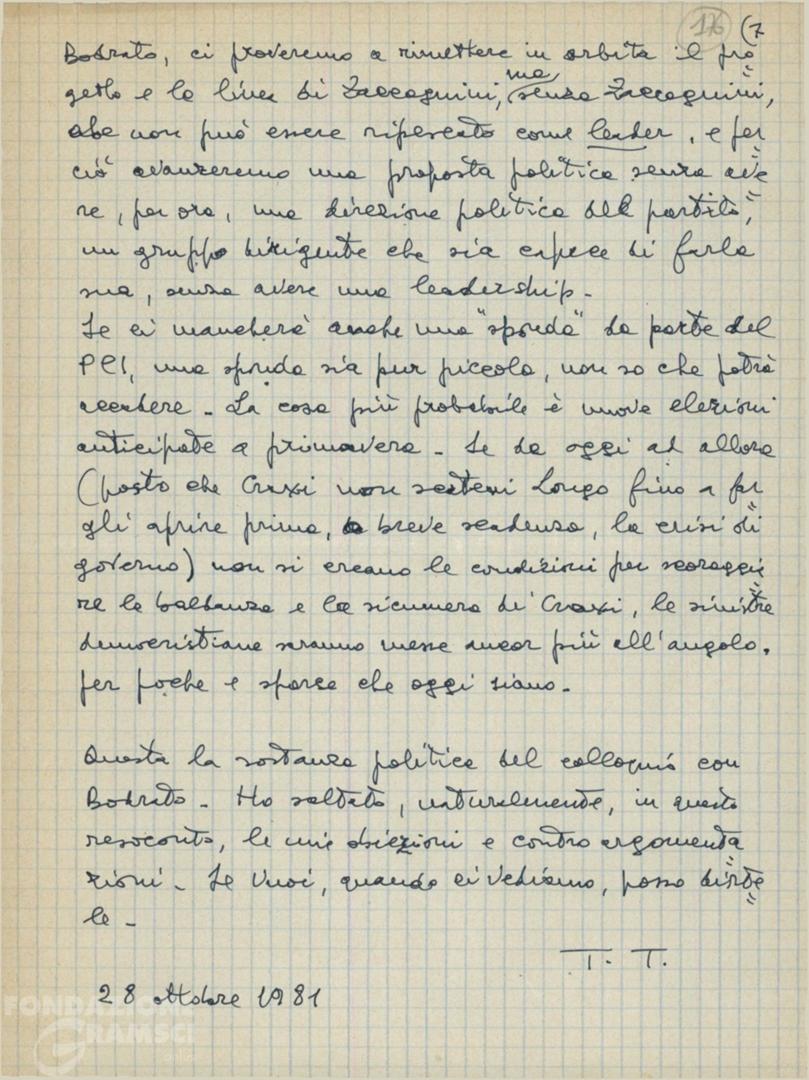 176 (7
Bodrato, ci proveremo a rimettere in orbita il pro=
getto e la linea di Zaccagnini, ma senza Zaccagnini,
che non può essere ripescato come leader, e per=
ciò avanzeremo una proposta politica senza ave=
re, per ora, una direzione politica del partito,
un gruppo dirigente che sia capace di farla
sua, senza avere una leadership.
Se ci mancherà anche una "sponda" da parte del
PCI, una sponda sia pur piccola, non so che potrà
accadere. La cosa più probabile è nuove elezioni
anticipate a primavera. Se da oggi ad allora
(posto che Craxi non scateni Longo fino a far=
gli aprire prima, a breve scadenza, la crisi di
governo) non si creano le condizioni per scoraggia=
re la baldanza e la sicumera di Craxi, le sinistre
democristiane saranno messe ancor più all'angolo,
per poche e sparse che oggi siano.
Questa la sostanza politica del colloquio con
Bodrato. Ho saltato, naturalmente, in questo
resoconto, le mie obiezioni e contro argomenta=
zioni. Se vuoi, quando ci vediamo, posso dirte=
le.
T. T.
28 ottobre 1981
FONDAZIONE
GRAMSCI